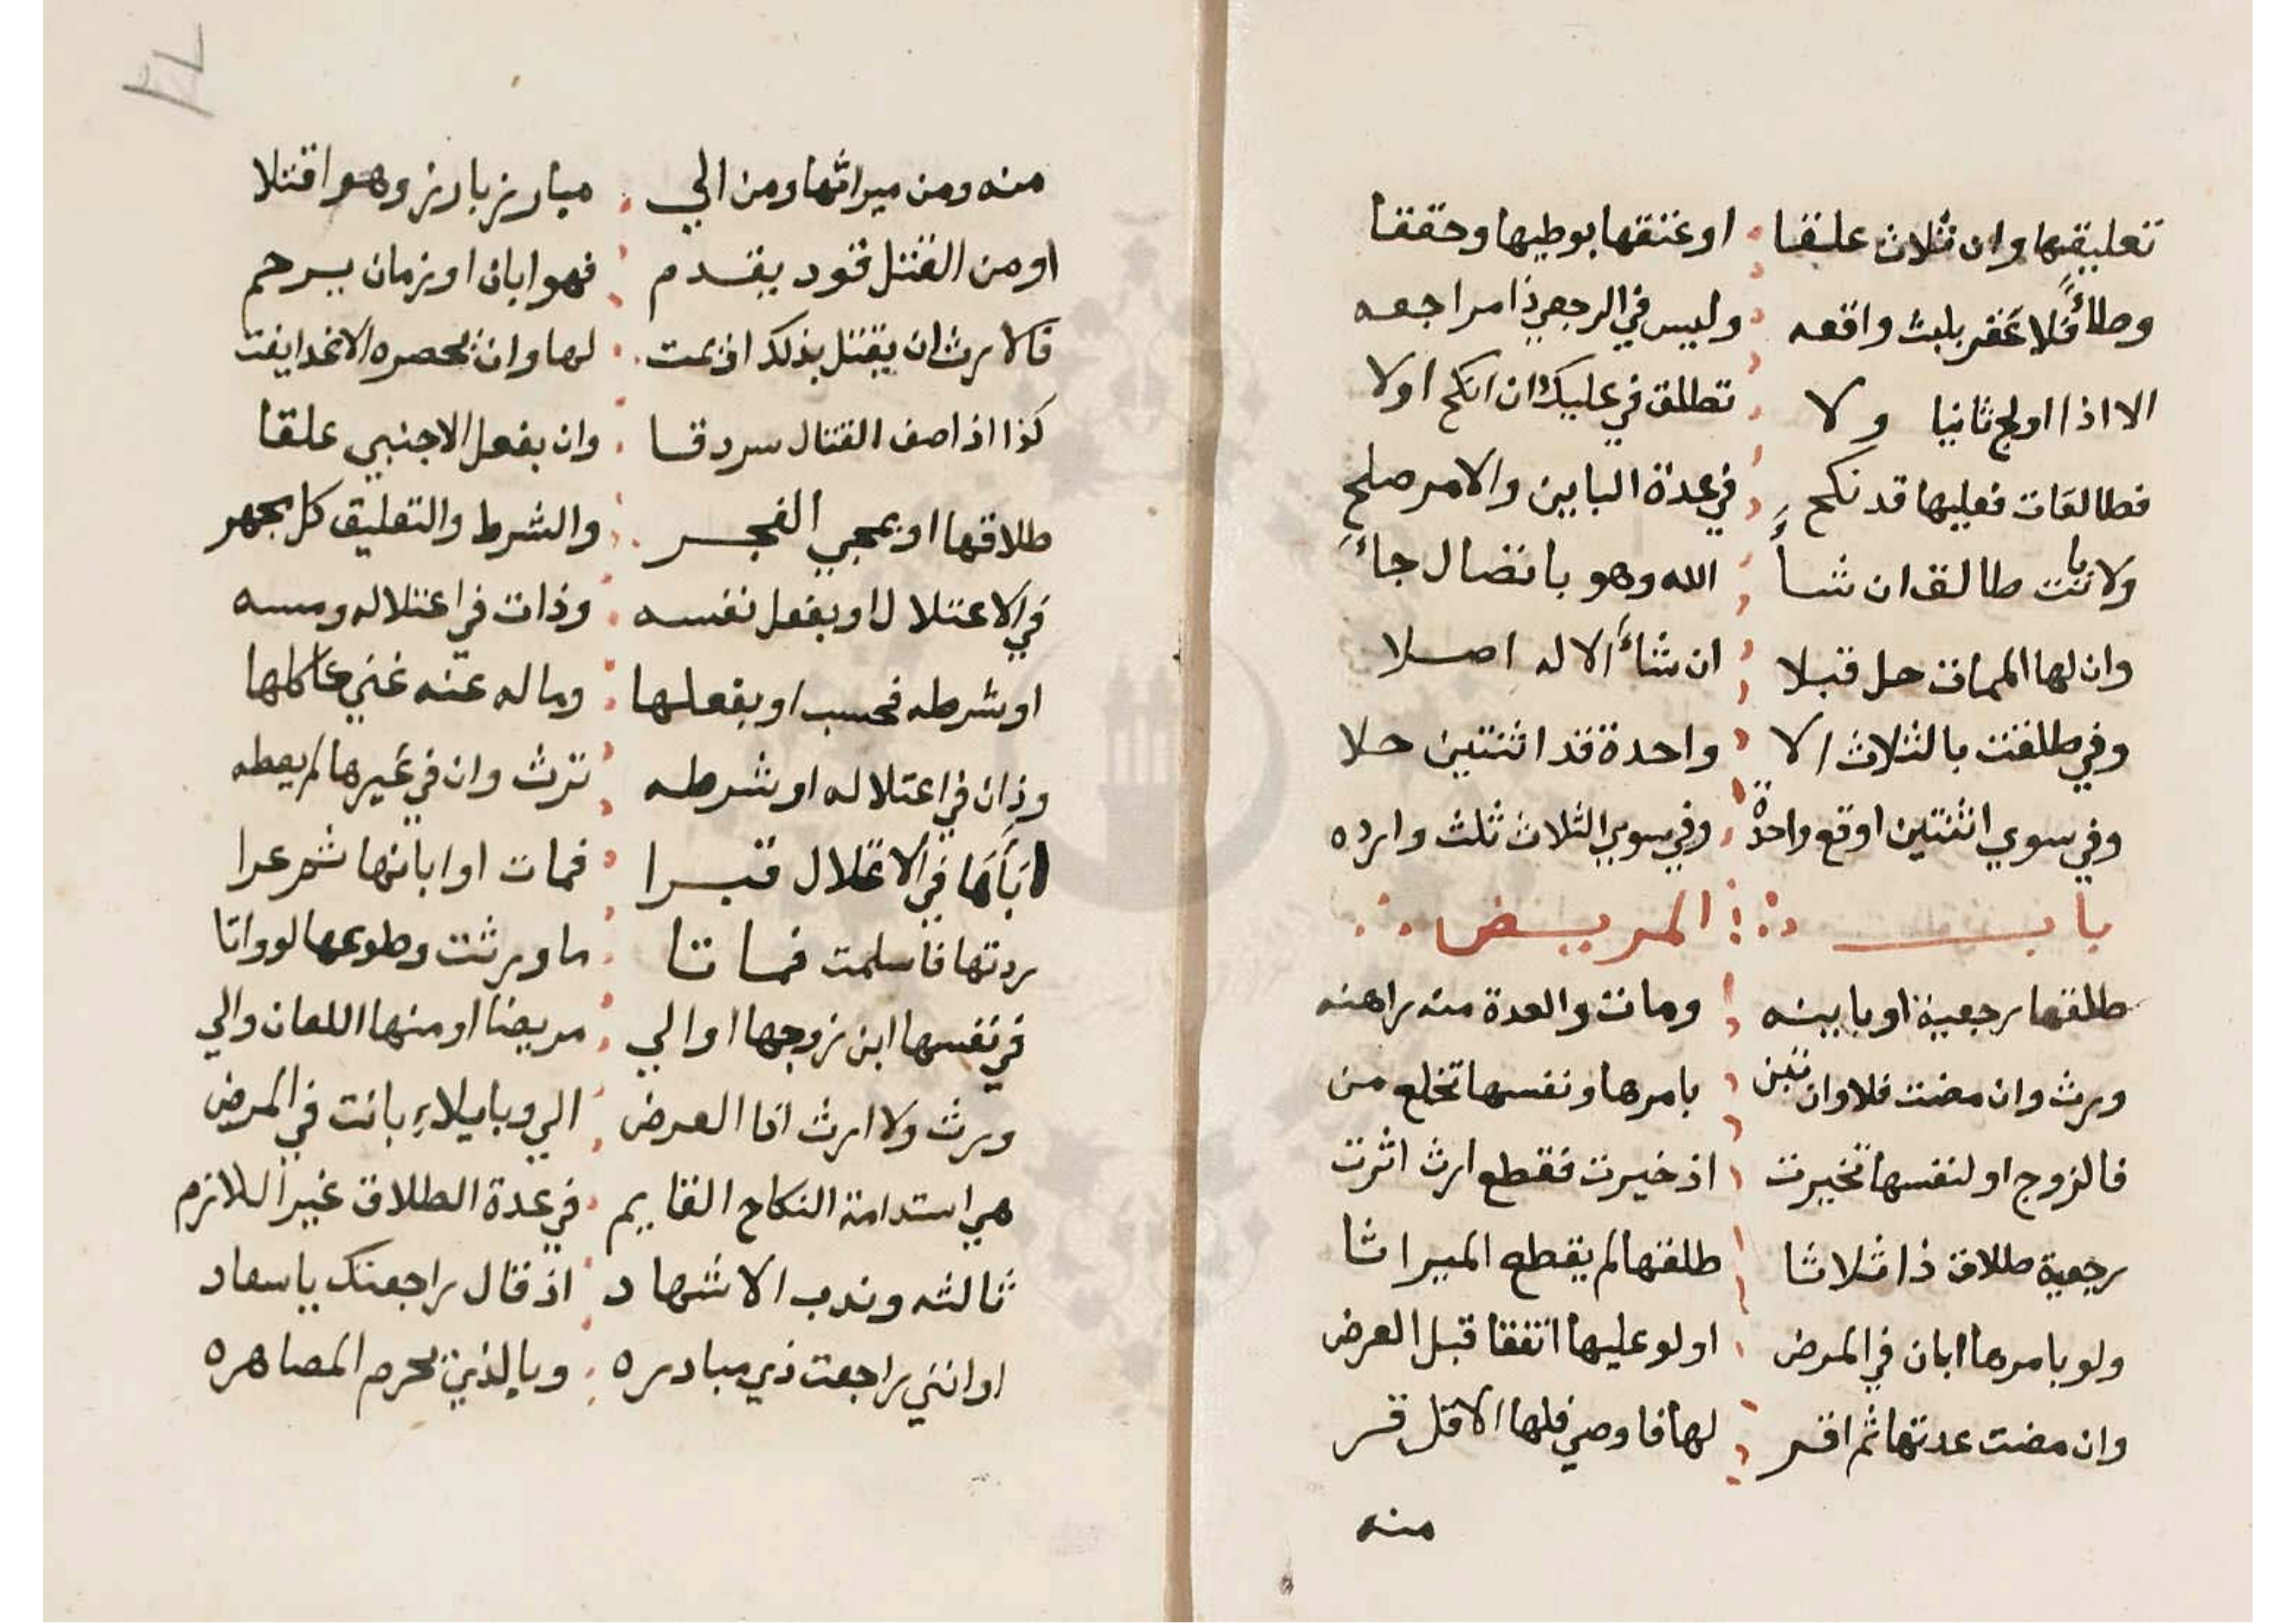 تعليقها وان ثلاث علقا او عتقها بوطيها وحققا
وطأ فلا عقر بلبث واقعه وليس في الرجعي ذا مراجعه
الا اذا اولج ثانيا ولا تطلق في عليك ان انكح اولا
فطالقات فعليها قد نكح في عدة الباين والامر صلح
ولا بانت طالق ان شأ الله وهو باتصال جاء
وان لها الممات حل قبلا ان شاء الاله اصلا
وفي طلقت بالثلاث الا واحدة قد اثنتين حلا
وفي سوي اثنتين اوقع واحدة وفي سوي الثلاث ثلث وارده
باب المريض
طلقها رجعية او باينه ومات والعدة منه راهنه
ورث وان مضت فلا وان تبن بامرها ونفسها تخلع من
فالزوج او لنفسها تخيرت اذ خيرت فقطع ارث اثرت
رجعية طلاق ذا ثلاثا طلقها لم يقطع الميراثا
ولو بامرها ابان في المرض او لو عليها اتفقا قبل العرض
وان مضت عدتها ثم اقر لها فاوصي فلها الاقل قر
منه
منه ومن ميراثها ومن الي مبارز بارز وهو اقتلا
او من القتل قود يقدم فهو ابان او زمان يرحم
فالارث ان يقتل بذلك اذ يمت لها وان يحصره لا غدا يفت
كذا اذا صف القتال سردقا وان بفعل الاجنبي علقا
طلاقها او بمجي الفجر والشرط والتعليق كل يجهر
في الاعتلال او بفعل نفسه وذات في اعتلاله ومسه
او شرطه فحسب او بفعلها وما له عنه غني
وذان في اعتلاله او شرطه ترث وان في غيرها لم يعطه
ابانها في الاعتلال فبرا فمات او ابانها ثم عرا
ردتها فاسلمت فماتا ما ورثت وطوعها لو واتا
في نفسها ابن زوجها او الي مريضا او منها اللعان والي
ورث ولا ارث اذا العرض الي وبايلاء بانت في المرض
هي استدامة النكاح القايم في عدة الطلاق غير اللازم
ثالثه وندب الاشهاد اذ قال راجعتك يا سعاد
او انني راجعت ذي مبادره وبالذي يحرم المصاهره